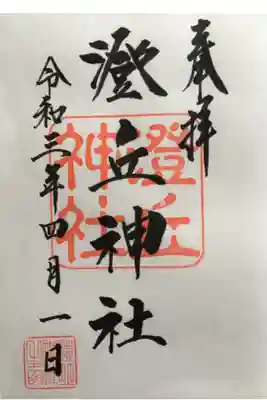 奉拝
澄丘神社
澄丘
神社
令和三年四月一日